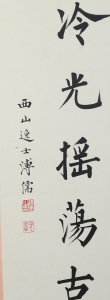 冷光摇蕩古
西山逸士溥儒